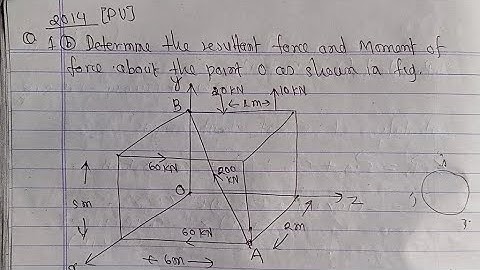 2014 [PU]
Q 1 (b) Determine the resultant force and Moment of
force about the point O as shown in fig.
y
B
20KN
10KN
1m
60KN
200
KN
5m
O
Z
2m
60KN
A
6m
x